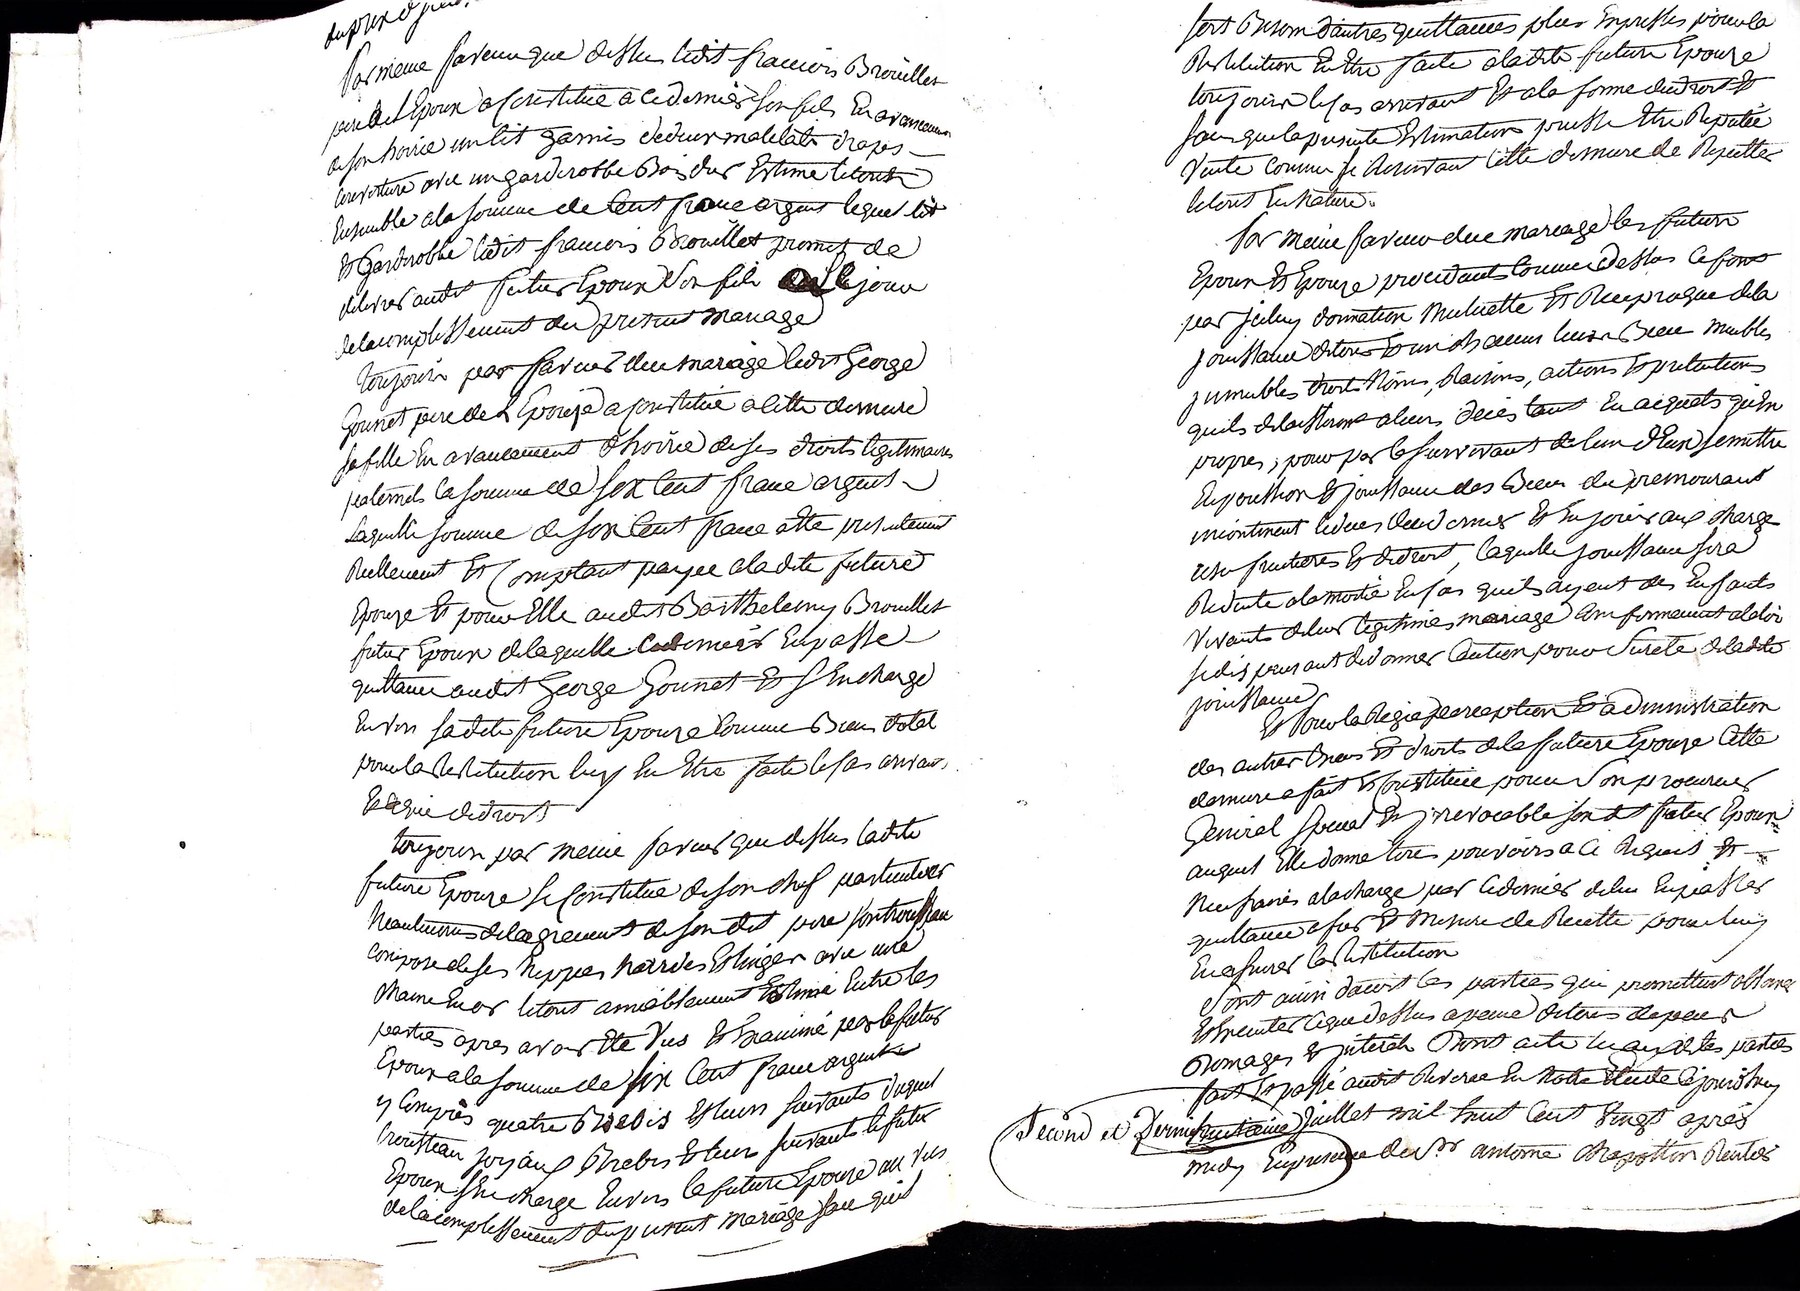 par meme faveur que dessus ledit francois Brouillet
pere del Epoux a Constitué a ce dernier son fils En avancement
de son hoirie un lit garnis de deux matelats draps
Couverture avec un garderobbe Bois dur Estimé le tout
Ensemble a la somme de Cent franc argent lequel lit
Et garderobbe ledit francois Brouillet promet de
delivrer audit futur Epoux son fils le jour
de lacomplissement du present mariage
toujour par faveur du mariage ledit George
Gounet pere de l Epouze a constitué a cette derniere
sa fille En avancement d'hoirie de ses droits legitimaires
paternels la somme de six Cent franc argent
Laquelle somme de six Cent franc a été presentement
Reellement Et Comptant payee a ladite future
Epouze Et pour Elle audit Barthelemy Brouillet
futur Epoux de laquelle ce dernier En passe
quittance audit George Gounet Et s Encharge
Envers sa dite future Epouze Comme Bien dotal
pour la Restitution luy En Etre faite le cas arrivant
de droit
toujour par meme faveur que dessus ladite
future Epouze se Constitue de son chef particulier
Neanmoins de lagrement de son dit pere son trousseau
composé de ses nippes hardes Et linges avec une
chaine En or le tout amiablement Estimé Entre les
parties apres avoir Eté Vus Et Examiné par le futur
Epoux a la somme de six Cent franc argent
y Compris quatre Brebis Et leurs suivants duquel
trousseau joyaux Brebis Et leur suivants le futur
Epoux s En charge Envers la future Epouze au vus
de lacomplissement du present mariage sans quil
soit Besoin dautres quittances plus Expresses pour la
Restitution En Etre faite a ladite future Epouze
toujour le cas arrivant Et a la forme du droit Et
sans que la presente Estimation puisse Etre Reputée
Vente comme se Reservant cette derniere de Repetter
le tout En nature.
Par meme faveur du mariage les futur
Epoux Et Epouze procedants Comme dessus se font
par donnation Mutuelle Et Reciproque de la
jouissance de tous Et un chacun leurs Biens meubles
jmmeubles droits Noms, Raisons, actions Et pretentions
quils delaisseront a leurs décès tant En acquets qu'En
propres, pour par le survivant de l'un d'Eux se mettre
En possession Et jouissance des Biens du premourant
incontinent le deces de ce dernier Et En jouir aux charge
usufruitieres Et de droit, laquelle jouissance sera
Reduite a la moitié En cas quils ayent des Enfants
Vivants de leur legitime mariage Conformement a la loi
se dispensant de donner Caution pour sureté de ladite
jouissance
Et Pour la Regie perception Et administration
des autres Biens Et droits de la future Epouze Cette
derniere a fait Et Constitué pour Son procureur
General special Et jrrevocable son dit futur Epoux
auquel Elle donne tous pouvoirs a ce Requis Et
Necessaires a la charge par ce dernier de lui En passer
quittance a fur Et mesure de Recette pour luy
En assurer la Restitution
Sont ainsi dacort les parties qui promettent observer
Et Executer ce que dessus a peine de tous depens
Domages Et jnterets Dont acte
fait Et passé audit En notre Etude ce jourdhuy
Second et Dernier juillet mil huit Cent Vingt après
midy En presence de Sr antoine Chapotton Rentier